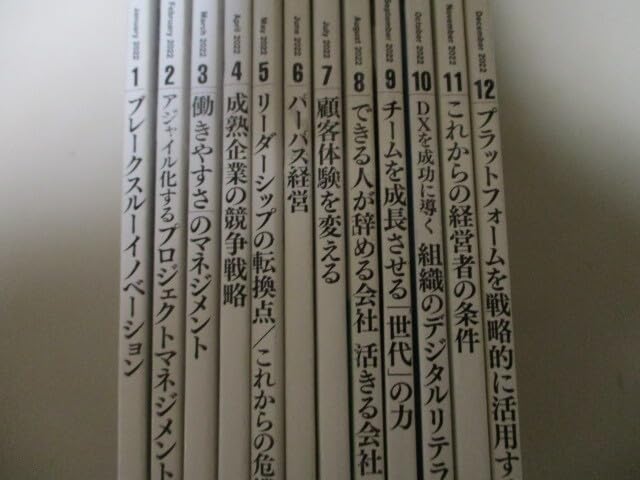 January 2022 1 ブレークスルーイノベーション
February 2022 2 アジャイル化するプロジェクトマネジメント
March 2022 3 「働きやすさ」のマネジメント
April 2022 4 成熟企業の競争戦略
May 2022 5 リーダーシップの転換点/これからの危機
June 2022 6 パーパス経営
July 2022 7 顧客体験を変える
August 2022 8 できる人が辞める会社 活きる会社
September 2022 9 チームを成長させる「世代」の力
October 2022 10 DXを成功に導く 組織のデジタルリテラ
November 2022 11 これからの経営者の条件
December 2022 12 プラットフォームを戦略的に活用す